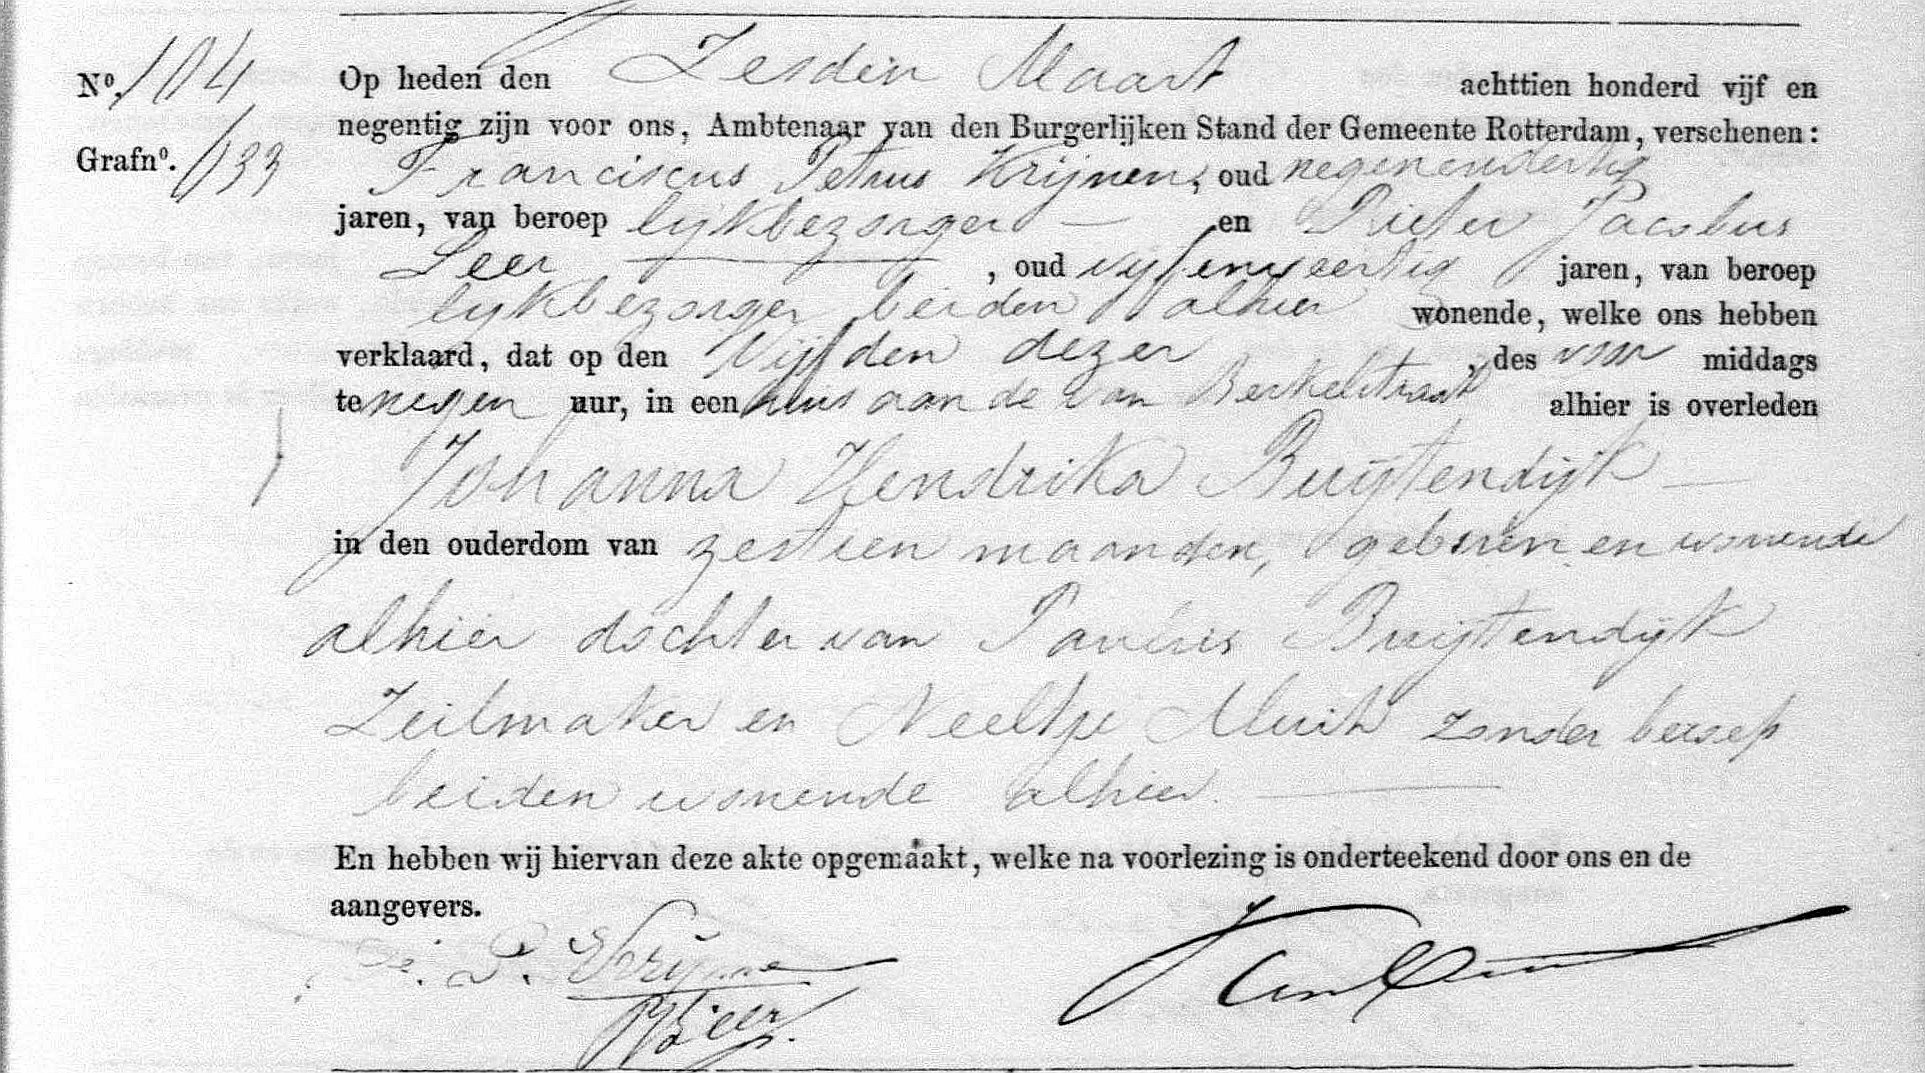 Nº. 104 Op heden den Zesden Maart achttien honderd vijf en
negentig zijn voor ons, Ambtenaar van den Burgerlijken Stand der Gemeente Rotterdam, verschenen:
Grafnº. 1133 Franciscus Petrus Krijnen, oud negenendertig
jaren, van beroep lijkbezorger en Pieter Jacobus
Leer, oud vijfenveertig jaren, van beroep
lijkbezorger beiden alhier wonende, welke ons hebben
verklaard, dat op den Vijfden dezer, des voor middags
te negen uur, in een huis aan de van Berkelstraat alhier is overleden
Johanna Hendrika Buijtendijk
in den ouderdom van zestien maanden, geboren en wonende
alhier dochter van Paulus Buijtendijk
Zeilmaker en Neeltje zonder beroep
beiden wonende alhier.
En hebben wij hiervan deze akte opgemaakt, welke na voorlezing is onderteekend door ons en de
aangevers.